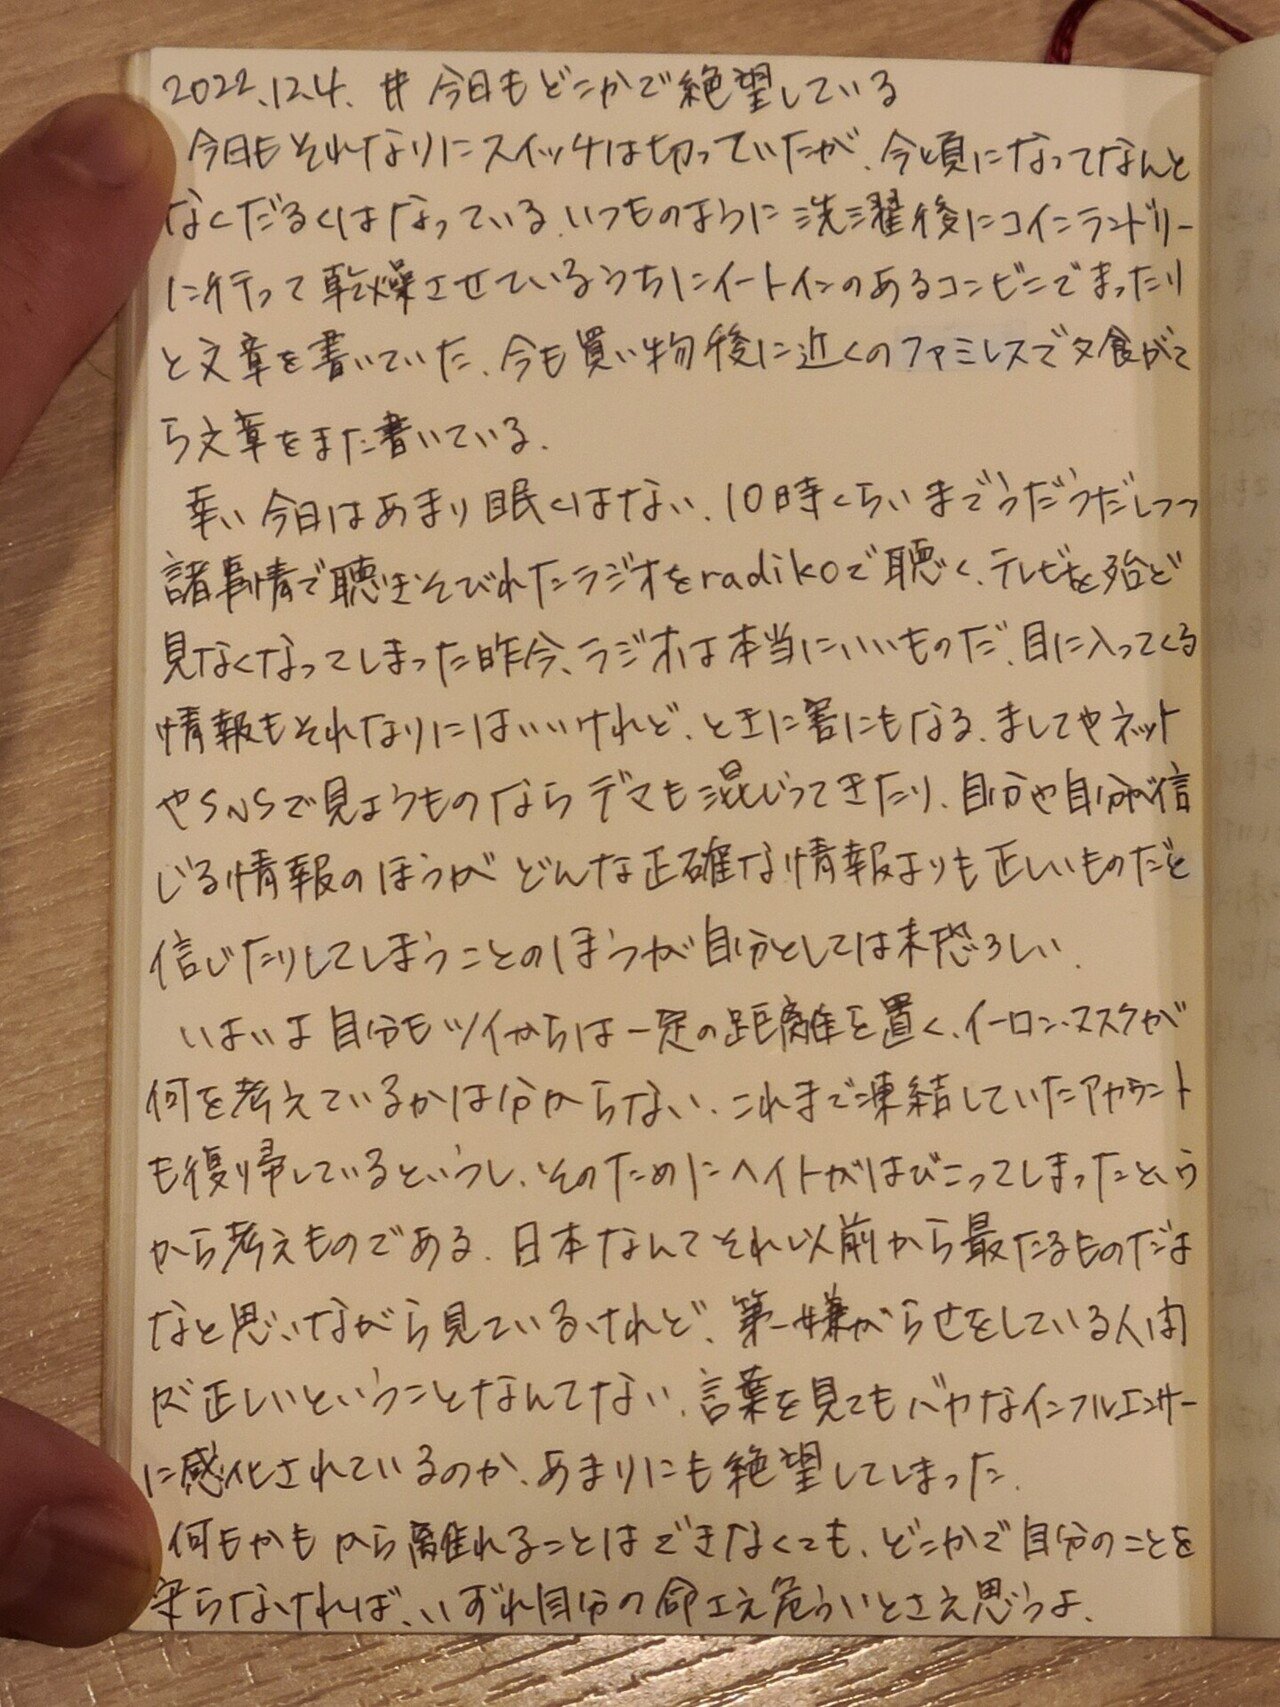 2022.12.4. #今日もどこかで絶望している
今日もそれなりにスイッチは切っていたが、今頃になってなんと
なくだるくはなっている。いつものように洗濯後にコインランドリー
に行って乾燥させているうちにイートインのあるコンビニでまったり
と文章を書いていた。今も買い物後に近くのファミレスで夕食がて
ら文章をまた書いている。
幸い今日はあまり眠くはない。10時くらいまでうだうだしつつ
諸事情で聴きそびれたラジオをradikoで聴く。テレビを殆ど
見なくなってしまった昨今、ラジオは本当にいいものだ。目に入ってくる
情報もそれなりにはいいけれど、ときに害にもなる。ましてやネット
やSNSで見ようものならデマも混じってきたり、自分や自分が信
じる情報のほうがどんな正確な情報よりも正しいものだと
信じたりしてしまうことのほうが自分としては末恐ろしい。
いまいま自分もツイからは一定の距離を置く。イーロン・マスクが
何を考えているかは分からない。これまで凍結していたアカウント
も復帰しているというし、そのためにヘイトがはびこってしまったという
から考えものである。日本なんてそれ以前から最たるものだよ
なと思いながら見ているけれど、第一嫌がらせをしている人間
が正しいということなんてない。言葉を見てもバカなインフルエンサー
に感化されているのか、あまりにも絶望してしまった。
何もかもから離れることはできなくても、どこかで自分のことを
守らなければ、いずれ自分の命さえ危ういとさえ思うよ。